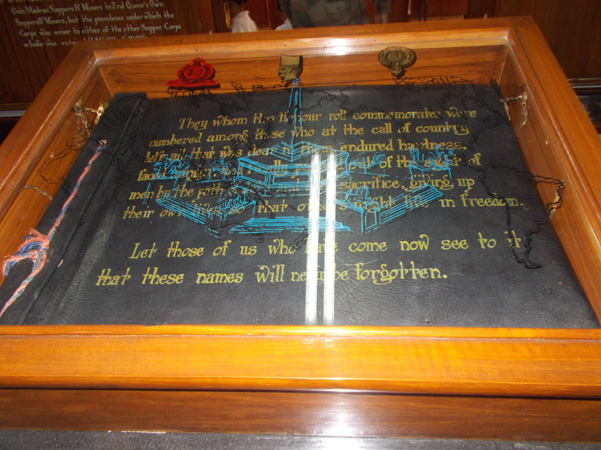 Own Madras Sappers & Miners to 2nd Queen's Own
Sappers & Miners, but the precedence under which the
Corps was senior to either of the other Sapper Corps
They whom this honour roll commemorates were
numbered among those who at the call of country
left all that was dear to them endured hardness,
faced of the sight of
men by the path of sacrifice, giving up
their own lives so that others might live in freedom.
Let those of us who have come now see to it
that these names will never be forgotten.